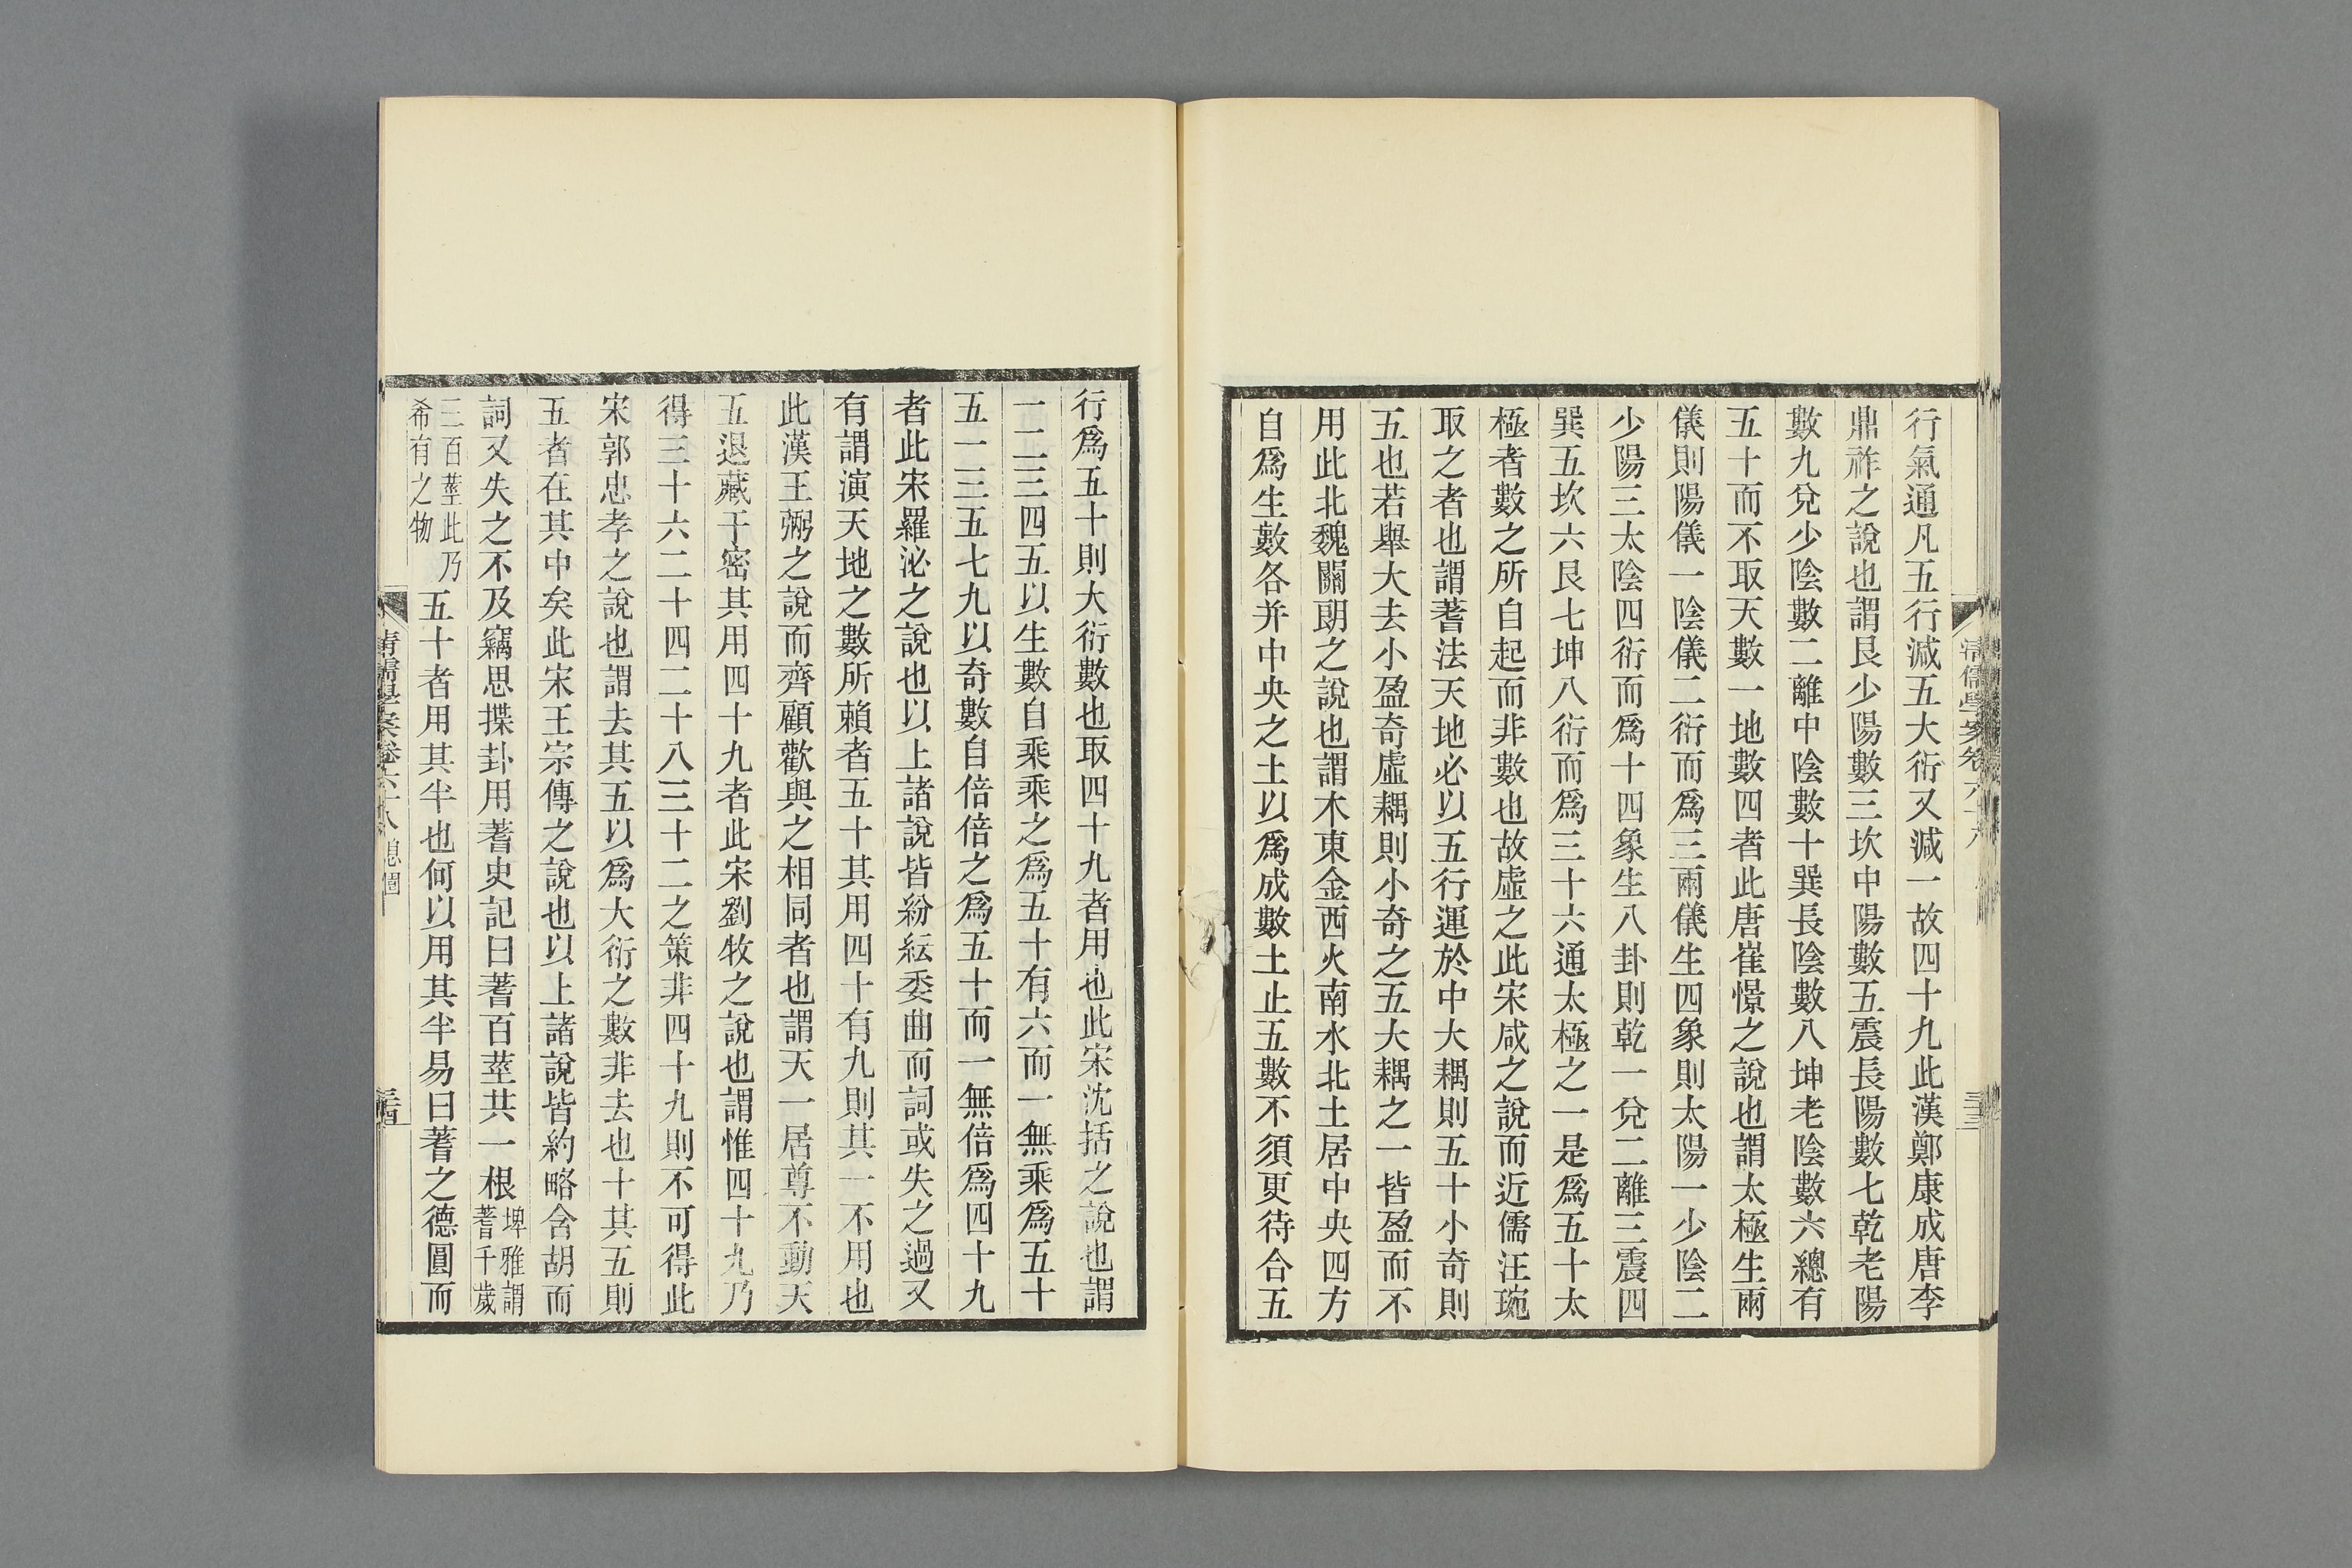 行氣通凡五行減五大衍又減一故四十九此漢鄭康成唐李
鼎祚之說也謂艮少陽數三坎中陽數五震長陽數七乾老陽
數九兌少陰數二離中陰數十巽長陰數八坤老陰數六總有
五十而不取天數一地數四者此唐崔憬之說也謂太極生兩
儀則陽儀一陰儀二衍而爲三兩儀生四象則太陽一少陰二
少陽三太陰四衍而爲十四象生八卦則乾一兌二離三震四
巽五坎六艮七坤八衍而爲三十六通太極之一是爲五十太
極者數之所自起而非數也故虛之此宋咸之說而近儒汪琬
取之者也謂蓍法天地必以五行運於中大耦則五十小奇則
五也若舉大去小盈奇虛耦則小奇之五大耦之一皆盈而不
用此北魏關朗之說也謂木東金西火南水北土居中央四方
自爲生數各并中央之土以爲成數土止五數不須更待合五
清儒學案卷六十八
三十三
行爲五十則大衍數也取四十九者用也此宋沈括之說也謂
一二三四五以生數自乘乘之爲五十有六而一無乘爲五十
五一三五七九以奇數自倍倍之爲五十而一無倍爲四十九
者此宋羅泌之說也以上諸說皆紛紜委曲而詞或失之過又
有謂演天地之數所賴者五十其用四十有九則其一不用也
此漢王弼之說而齊顧歡與之相同者也謂天一居尊不動天
五退藏于密其用四十九者此宋劉牧之說也謂惟四十九乃
得三十六二十四二十八三十二之策非四十九則不可得此
宋郭忠孝之說也謂去其五以爲大衍之數非去也十其五則
五者在其中矣此宋王宗傳之說也以上諸說皆約略含胡而
詞又失之不及竊思揲卦用蓍史記曰蓍百莖共一根埤雅謂蓍千歲
三百莖此乃希有之物五十者用其半也何以用其半易曰蓍之德圓而
清儒學案卷六十八
三十四